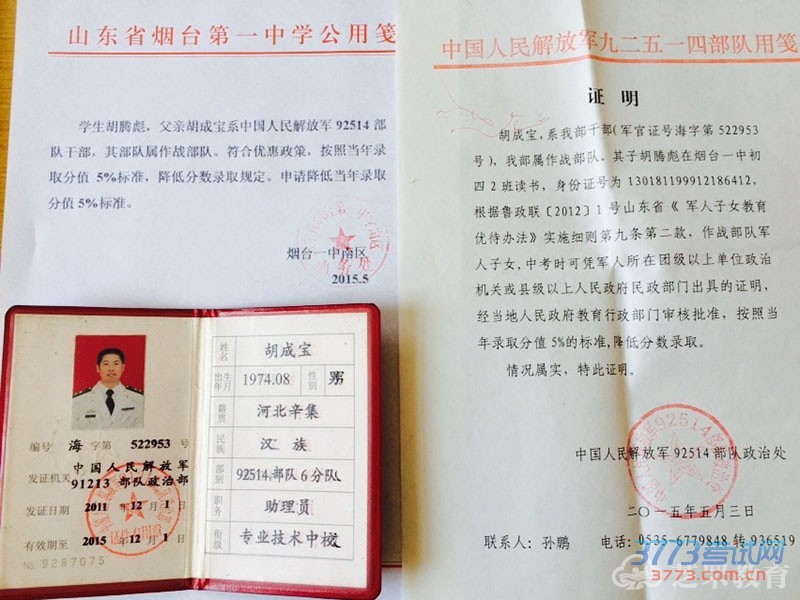 山东省烟台第一中学公用笺
学生胡腾彪，父亲胡成宝系中国人民解放军 92514 部
队干部，其部队属作战部队。符合优惠政策，按照当年录
取分值 5%标准，降低分数录取规定。申请降低当年录取
分值 5%标准。
烟台一中南区
2015.5
中国人民解放军九二五一四部队用笺
证 明
胡成宝，系我部干部(军官证号海字第 522953
号)，我部属作战部队。其子胡腾彪在烟台一中初
四 2 班读书，身份证号为 130181199912186412。
根据鲁政联【2012】1 号山东省《 军人子女教育
优待办法》实施细则第九条第二款，作战部队军
人子女,中考时可凭军人所在团级以上单位政治
机关或县级以上人民政府民政部门出具的证明，
经当地人民政府教育行政部门审核批准，按照当
年录取分值 5%的标准,降低分数录取。
情况属实，特此证明。
中国人民解放军 92514 部队政治处
二〇一五年五月三日
联系人：孙鹏 电话:0535-6779848 转 936519
编号 海 字第 522953 号
发证机关 中国人民解放军
91213 部队政治部
发证日期 2011 年 12 月 1 日
有效期至 2015 年 12 月 1 日
No 9287075
姓名 胡成宝
出生年月 1974.08 性别 男
籍贯 河北辛集
民族 汉族
部别 92514 部队 6 分队
职务 助理员
衔级 专业技术中校
3773考试网
3773.com.cn
教育